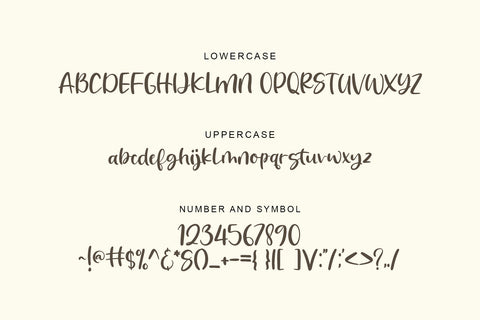 LOWERCASE
ABCDEFGHIJKLMN OPQRSTUVWXYZ
UPPERCASE
abcdefghijklmnopqrstuvwxyz
NUMBER AND SYMBOL
1234567890
~!@#$%^&*8()_+-={ }|[ ]\/:"/;'<>?,./